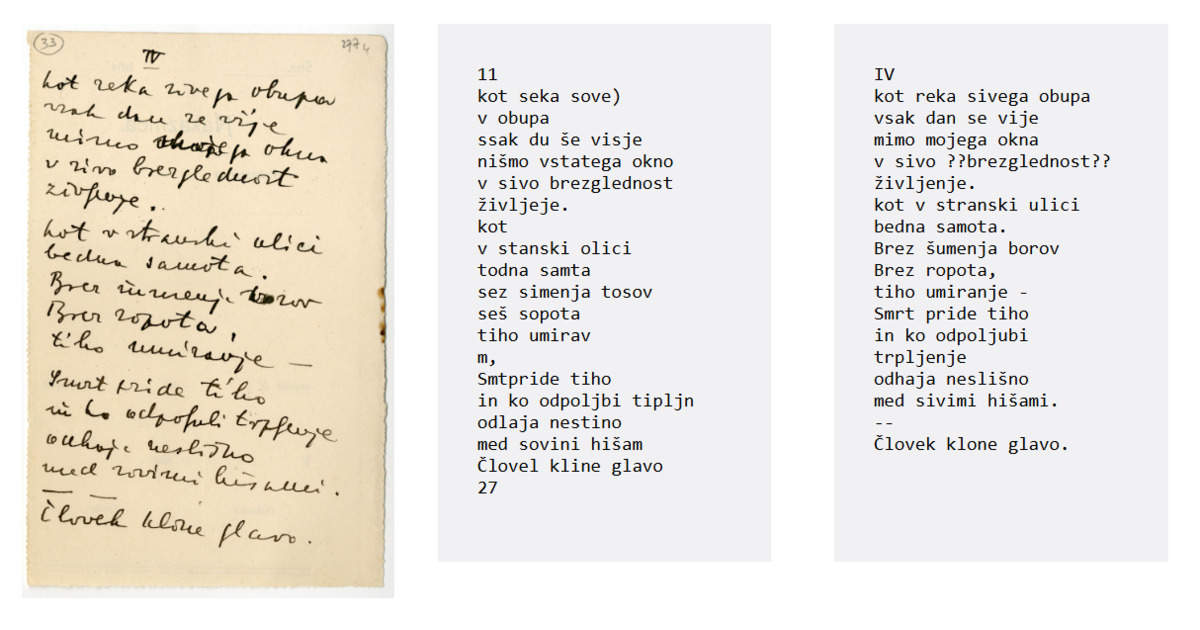 33
277
IV
kot reka sivega obupa
vsak dan se vije
mimo mojega okna
v sivo brezglednost
življenje.
kot v stranski ulici
bedna samota.
Brez šumenja borov
Brez ropota,
tiho umiranje –
Smrt pride tiho
in ko odpoljubi trpljenje
odhaja neslišno
med sivimi hišami.
— —
Človek klone glavo.
11
kot seka sove)
v obupa
ssak du še visje
nišmo vstatega okno
v sivo brezglednost
življeje.
kot
v stanski olici
todna samta
sez simenja tosov
seš sopota
tiho umirav
m,
Smtpride tiho
in ko odpoljbi tipljn
odlaja nestino
med sovini hišam
Človel kline glavo
27
IV
kot reka sivega obupa
vsak dan se vije
mimo mojega okna
v sivo ??brezglednost??
življenje.
kot v stranski ulici
bedna samota.
Brez šumenja borov
Brez ropota,
tiho umiranje -
Smrt pride tiho
in ko odpoljubi
trpljenje
odhaja neslišno
med sivimi hišami.
--
Človek klone glavo.